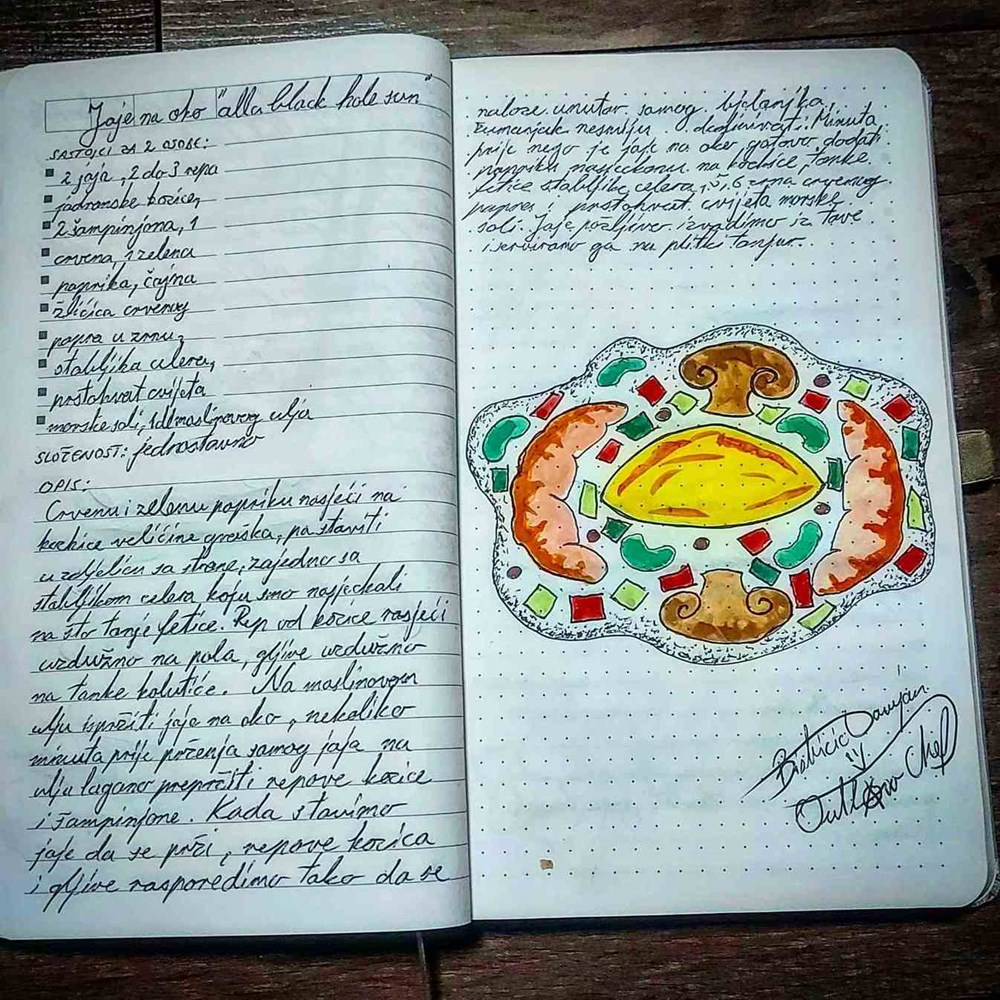 Jaje na oko "alla black hole sun"
SASTOJCI ZA 2 OSOBE:
2 jaja, 2 do 3 repa
jadranske kozice,
2 šampinjona, 1
crvena, 1 zelena
paprika, čajna
žličica crvenog
papra u zrnu,
stabljika celera,
prstohvat cvijeta
morske soli, 1dl maslinovog ulja
SLOŽENOST: jednostavno
OPIS:
Crvenu i zelenu papriku nasjeći na
kockice veličine graška, pa staviti
u zdjelicu sa strane, zajedno sa
stabljikom celera koju smo nasjeckali
na što tanje fetice. Rep od kozice rasjeći
uzdužno na pola, gljive uzdužno
na tanke kolutiće. Na maslinovom
ulju ispržiti jaje na oko, nekoliko
minuta prije prženja samog jaja na
ulju lagano popržiti repove kozice
i šampinjone. Kada stavimo
jaje da se prži, repove kozica
i gljive rasporedimo tako da se
nalaze unutar samog bjelanjka,
žumanjak nesmiju dodirivati. Minuta
prije nego je jaje na oko gotovo, dodati
papriku nasjeckanu na kockice, tanke
fetice stabljike celera, 5, 6 zrna crvenog
papra i prstohvat cvijeta morske
soli. Jaje pažljivo izvadimo iz tave
i serviramo ga na plitki tanjur.
Damjan
Outlaw Chef